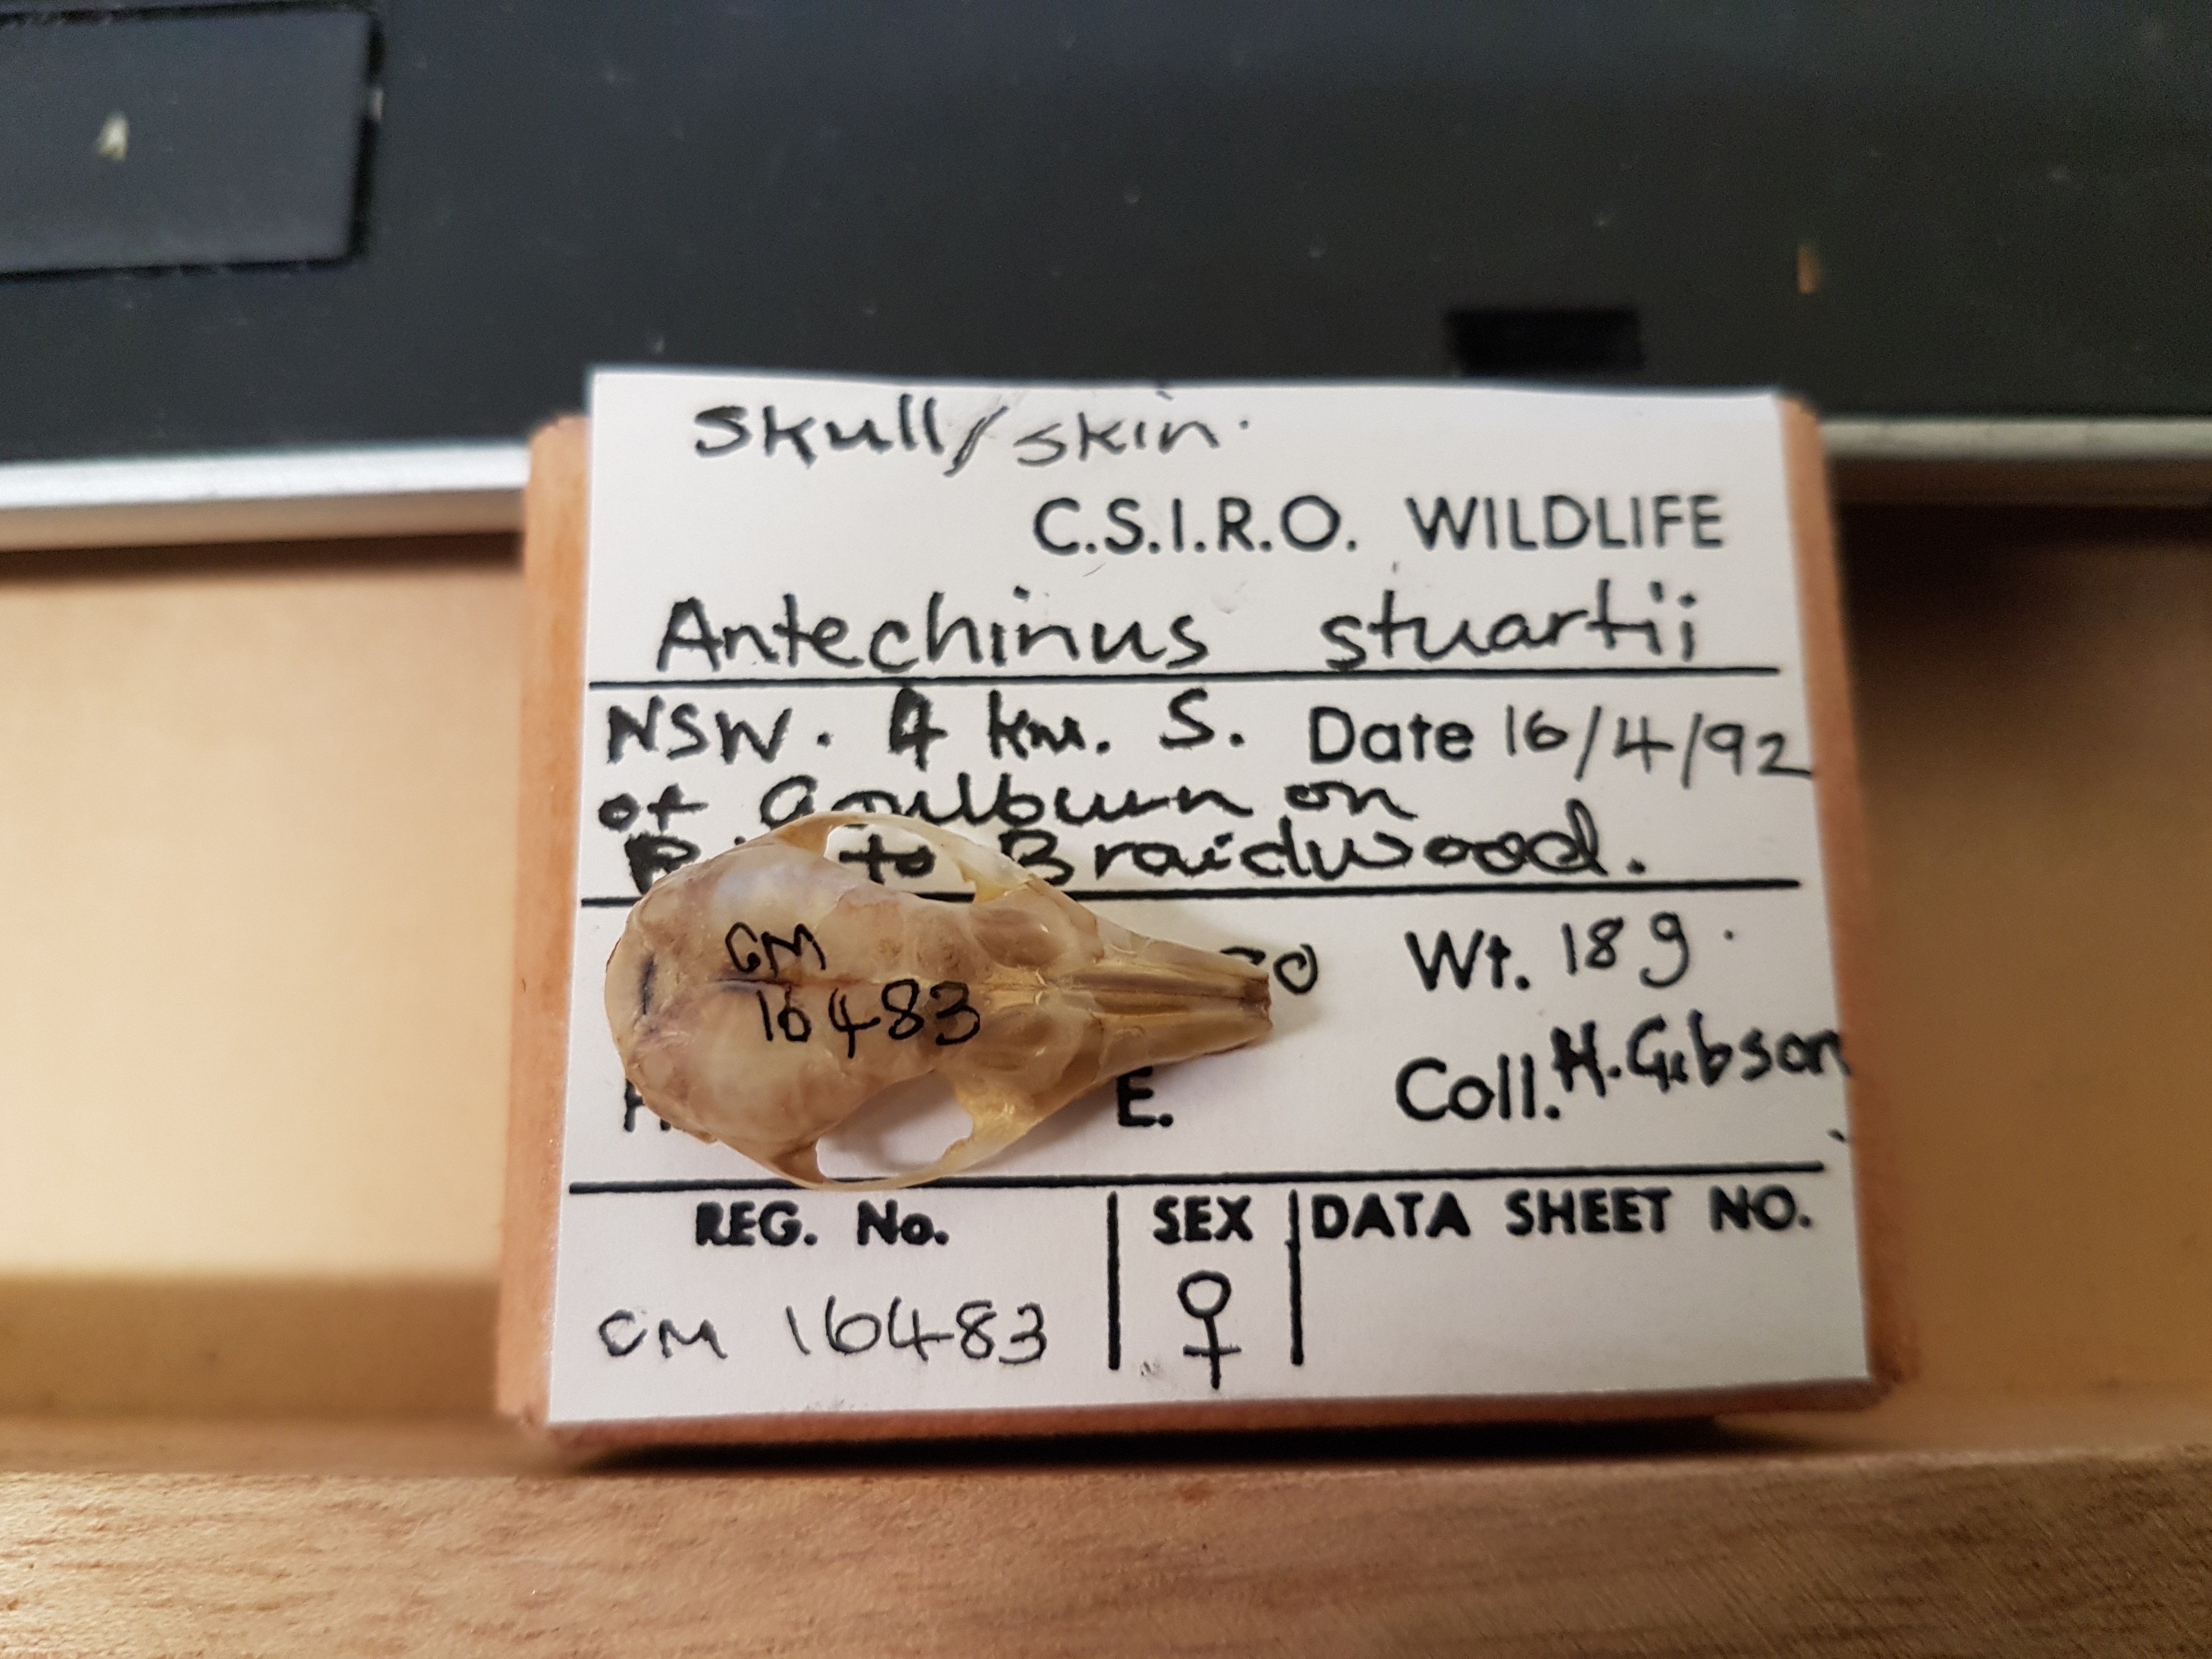 Skull/skin.
C.S.I.R.O. WILDLIFE
Antechinus stuartii
NSW. 4 km. S. Date 16/4/92
of Goulburn on
to Braidwood.
Wt. 18g.
E. Coll. H. Gibson
REG. No. | SEX | DATA SHEET NO.
CM 16483 | ♀ |
CM
16483